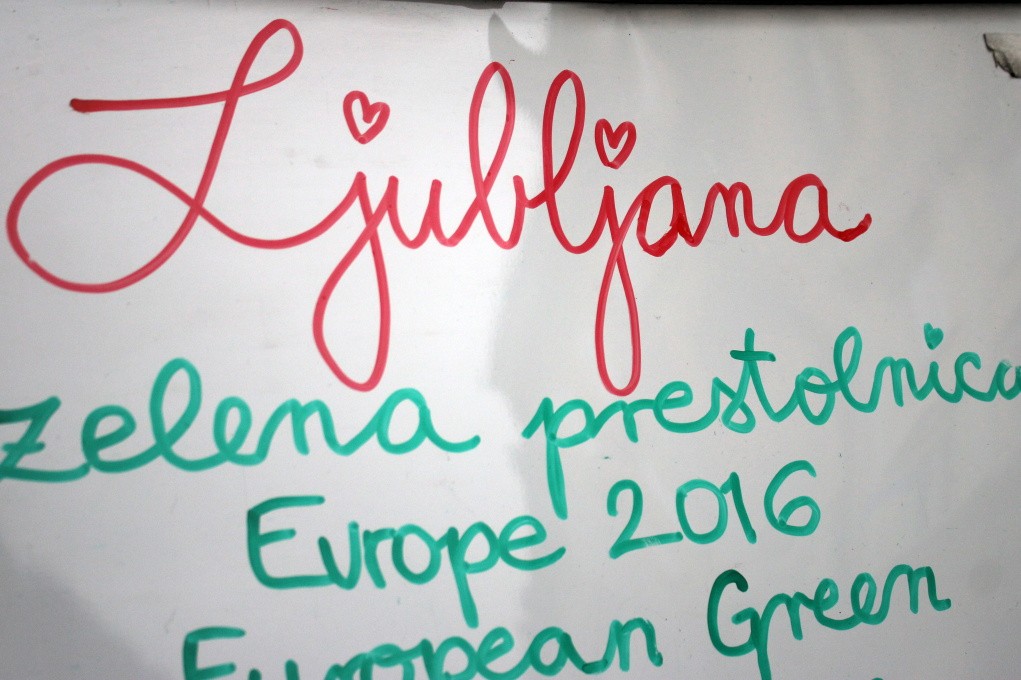 Ljubljana
zelena prestolnica
Europe 2016
European Green